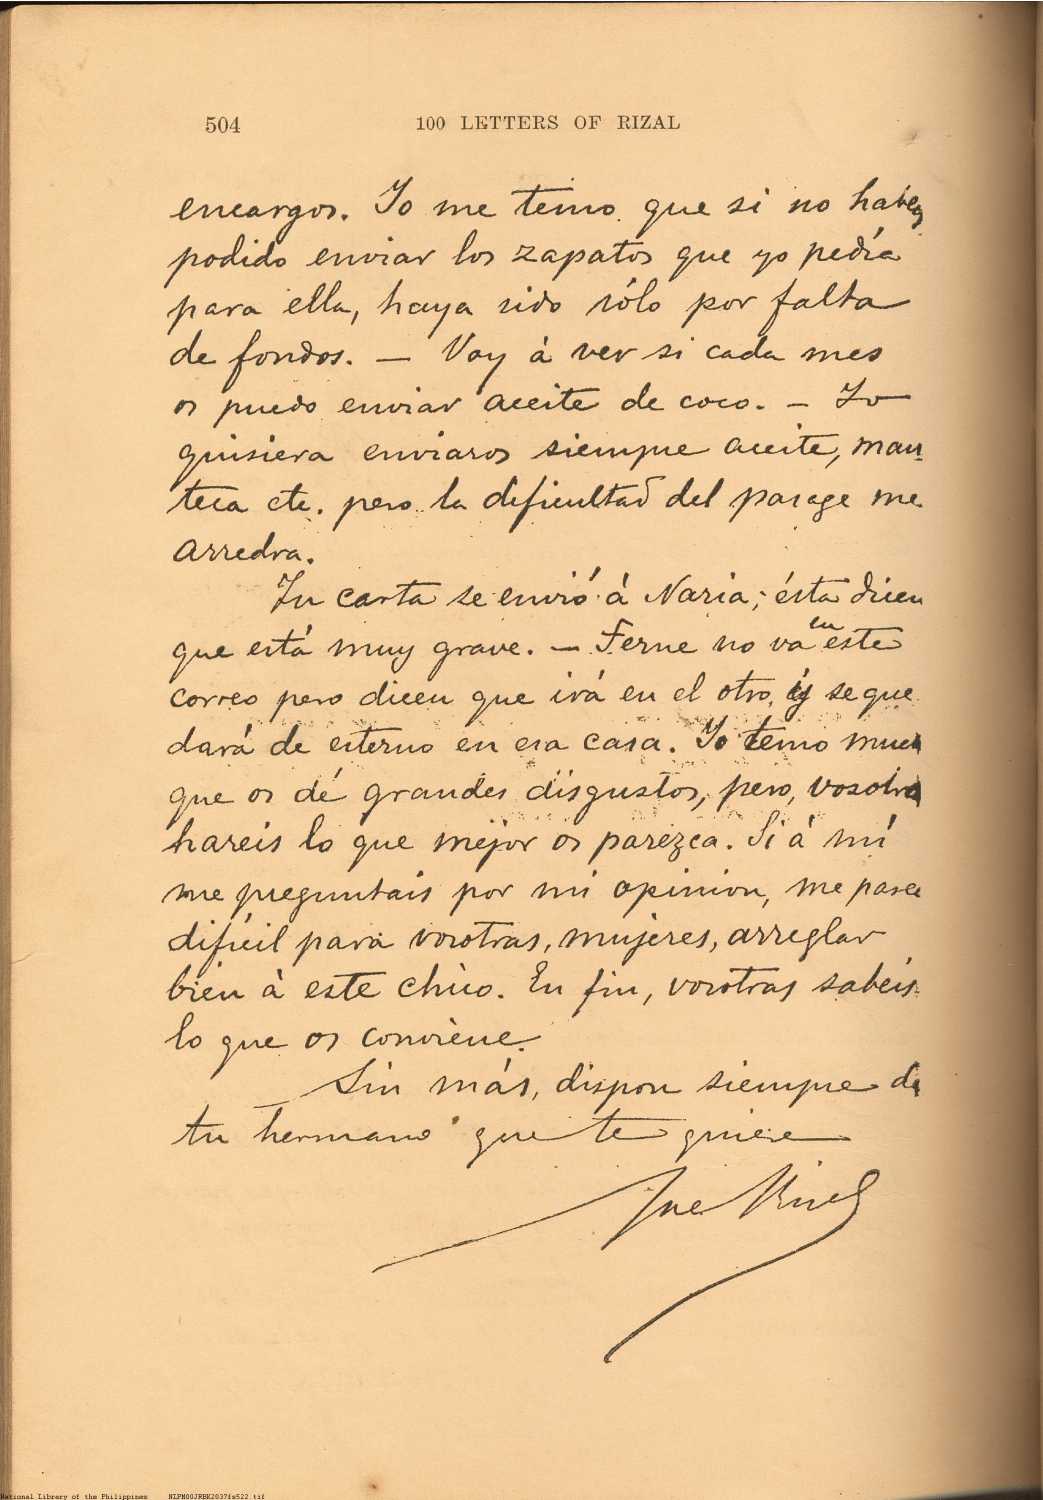 504
100 LETTERS OF RIZAL
encargos. Yo me temo que si no habeis
podido enviar los zapatos que yo pedía
para ella, haya sido sólo por falta
de fondos. — Voy á ver si cada mes
os puedo enviar aceite de coco. — Yo
quisiera enviaros siempre aceite, man-
teca etc. pero la dificultad del parage me
arredra.
Tu carta se envió á Naria; ésta dicen
que está muy grave. — Ferne no va en este
correo pero dicen que irá en el otro, y se que
dará de esterno en esa casa. Yo temo much
que os dé grandes disgustos, pero, vosotras
hareis lo que mejor os parezca. Si á mí
me preguntais por mi opinion, me parece
difícil para vosotras, mujeres, arreglar
bien á este chico. En fin, vosotras sabéis
lo que os conviene.
Sin más, dispon siempre de
tu hermano que te quiere
José Rizal
National Library of the Philippines NLPM00JRBK2037fs522.tif